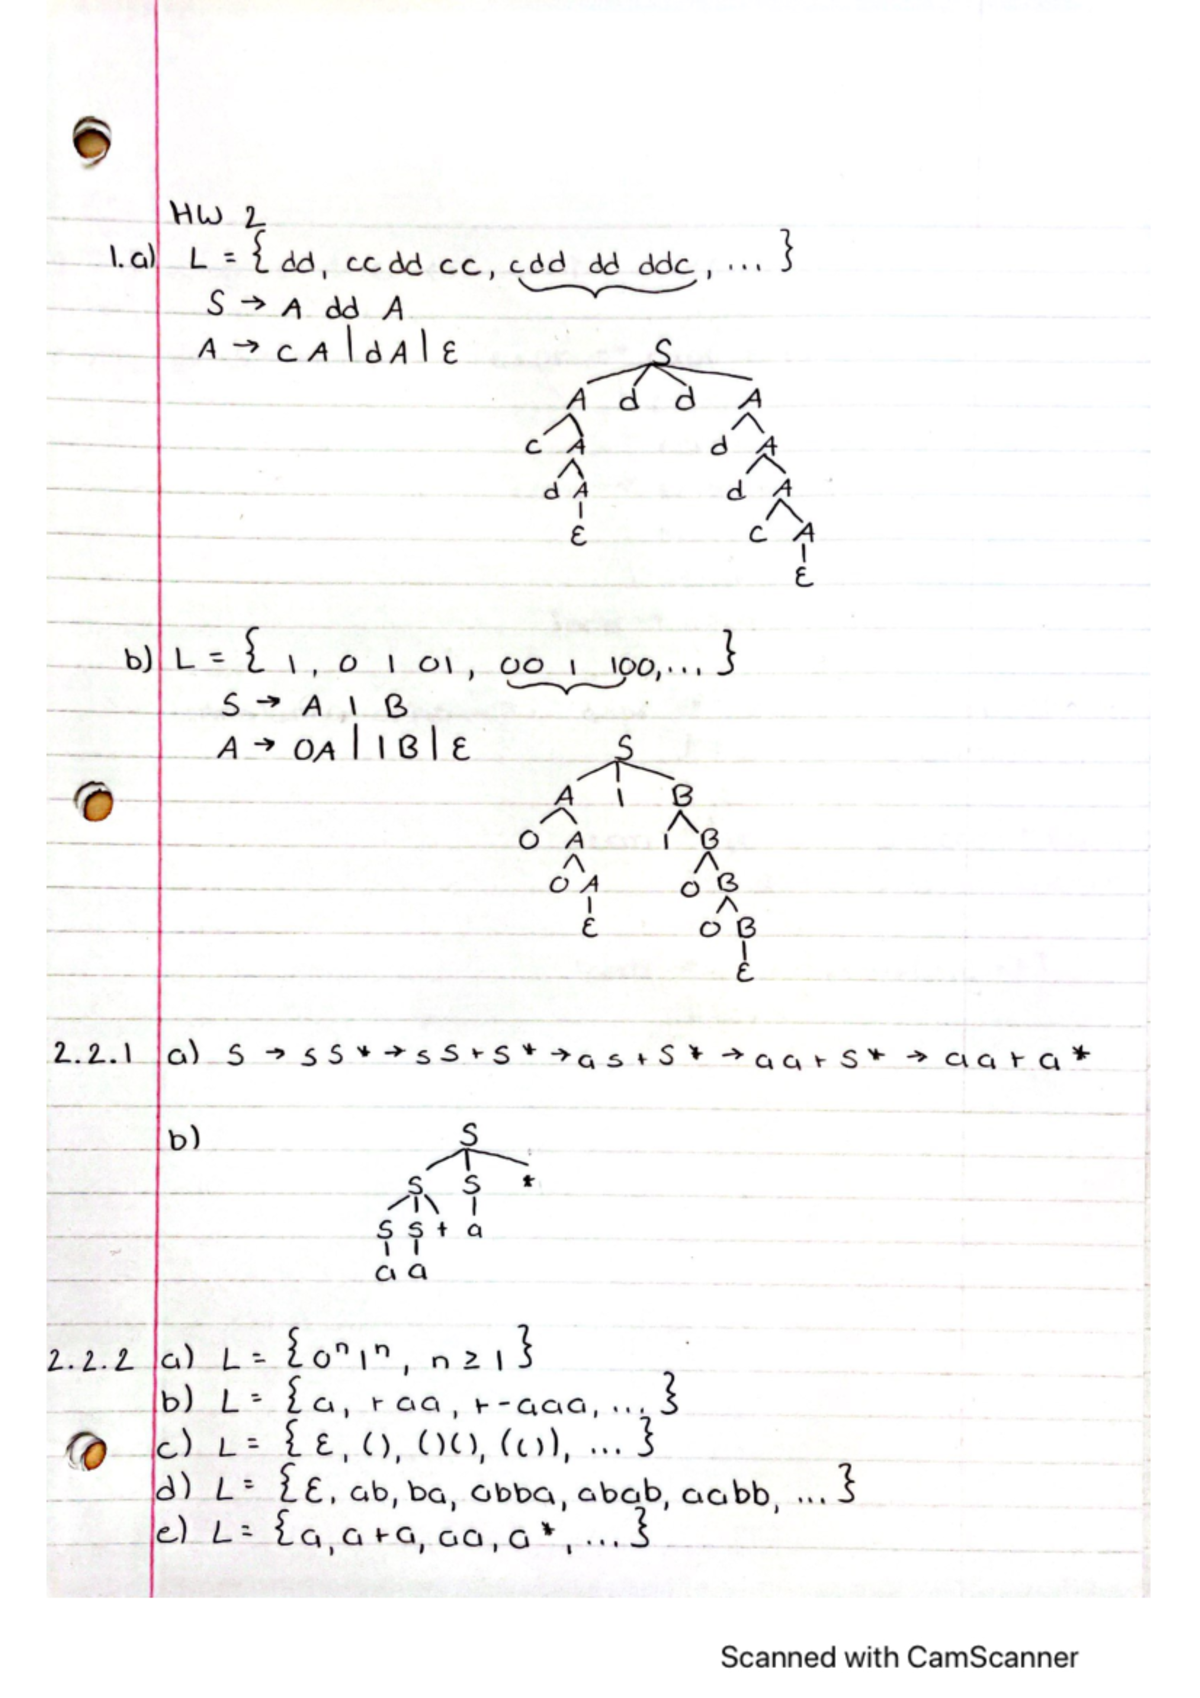 HW 2
1. a) L = { dd, cc dd cc, cdd dd ddc, ... }
S → A dd A
A → c A | d A | ε
S
A d d A
c A d A
d A d A
ε c A
ε
b) L = { 1, 0 1 01, 00 1 100, ... }
S → A 1 B
A → 0A | 1 B | ε
S
A 1 B
0 A 1 B
0 A 0 B
ε 0 B
ε
2.2.1 a) S → S S * → S S + S * → a S + S * → a a + S * → a a + a *
b)
S
S S *
S S + a
a a
2.2.2 a) L = { 0ⁿ 1ⁿ, n ≥ 1 }
b) L = { a, + aa, + - aaa, ... }
c) L = { ε, (), ()(), (()), ... }
d) L = { ε, ab, ba, abba, abab, aabb, ... }
e) L = { a, a + a, aa, a *, ... }
Scanned with CamScanner